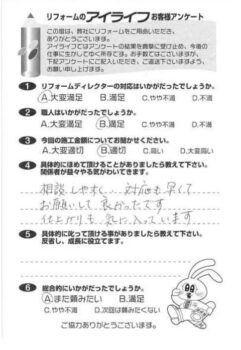 リフォームのアイライフお客様アンケート
この度は、弊社にリフォームをご用命いただき、
ありがとうございます。
アイライフではアンケートの結果を真摯に受け止め、今後の
仕事に生かしてゆく所存です。お手数ではございますが、
下記アンケートにご記入いただき、ご返送下さいますよう、
お願い申し上げます。
1 リフォームディレクターの対応はいかがだったでしょうか。
A.大変満足 B.満足 C.やや不満 D.不満
2 職人はいかがだったでしょうか。
A.大変満足 B.満足 C.やや不満 D.不満
3 今回の施工金額についてお聞かせください。
A.大変適切 B.適切 C.高い D.大変高い
4 具体的にほめて頂けることがありましたら教えて下さい。
関係者が益々やる気がわいてきます。
相談しやすく 対応も早くて
お願いして 良かったです
仕上がりも 気に入っています
5 具体的に叱って頂ける事がありましたら教えて下さい。
反省し、成長に役立てます。
6 総合的にいかがだったでしょうか。
A.また頼みたい B.満足
C.やや不満 D.次回は頼みたくない
ご協力ありがとうございます。